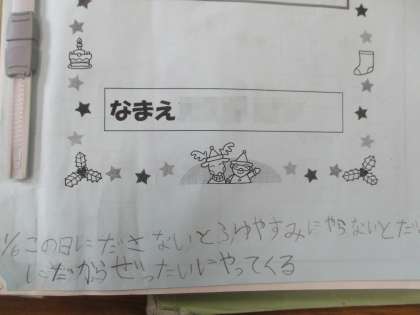 なまえ
1/6この日にださないとふゆやすみにやらないとだめ
にだからぜったいにやってくる